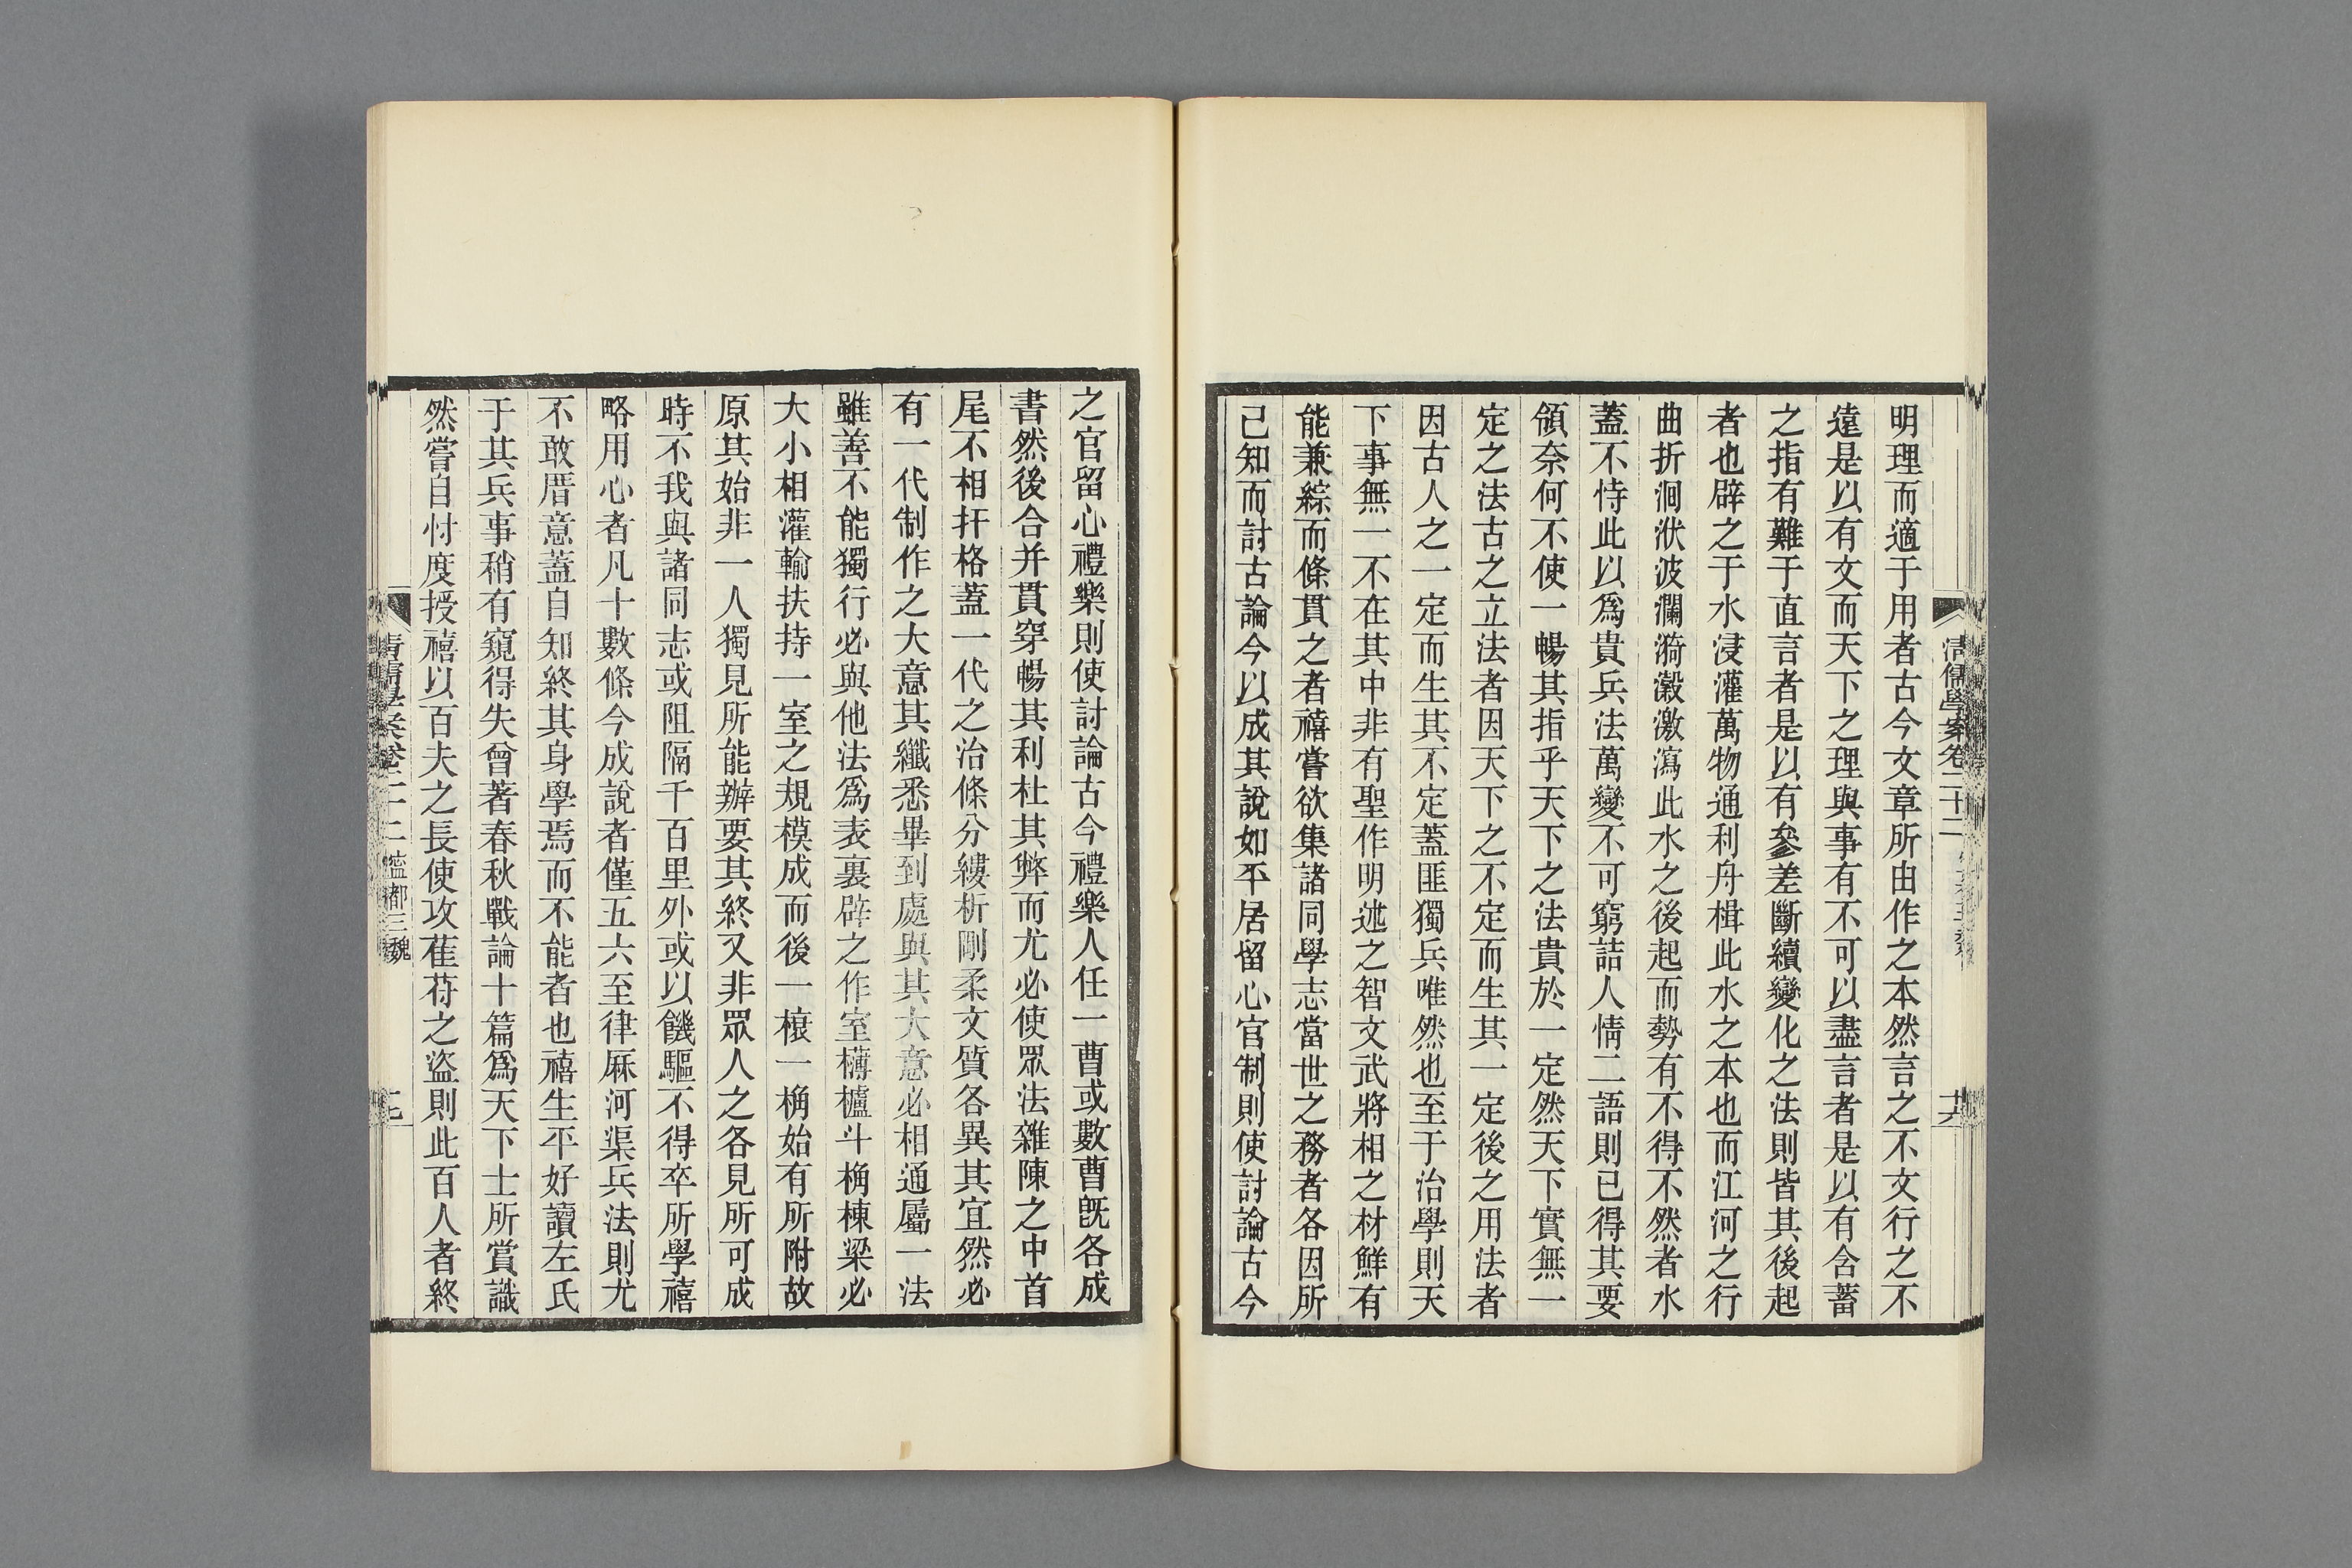 明理而適于用者古今文章所由作之本然言之不文行之不
遠是以有文而天下之理與事有不可以盡言者是以有含蓄
之指有難于直言者是以有參差斷續變化之法則皆其後起
者也辟之于水浸灌萬物通利舟楫此水之本也而江河之行
曲折洄洑波瀾漪瀔激瀉此水之後起而勢有不得不然者水
蓋不恃此以爲貴兵法萬變不可窮詰人情二語則已得其要
領奈何不使一暢其指乎天下之法貴於一定然天下實無一
定之法古之立法者因天下之不定而生其一定後之用法者
因古人之一定而生其不定蓋匪獨兵唯然也至于治學則天
下事無一不在其中非有聖作明述之智文武將相之材鮮有
能兼綜而條貫之者禧嘗欲集諸同學志當世之務者各因所
己知而討古論今以成其說如平居留心官制則使討論古今
清儒學案卷二十二
之官留心禮樂則使討論古今禮樂人任一曹或數曹旣各成
書然後合并貫穿暢其利杜其弊而尤必使眾法雜陳之中首
尾不相扞格蓋一代之治條分縷析剛柔文質各異其宜然必
有一代制作之大意其纖悉畢到處與其大意必相通屬一法
雖善不能獨行必與他法爲表裏辟之作室欂櫨斗桷棟梁必
大小相灌輸扶持一室之規模成而後一榱一桷始有所附故
原其始非一人獨見所能辦要其終又非眾人之各見所可成
時不我與諸同志或阻隔千百里外或以饑驅不得卒所學禧
略用心者凡十數條今成說者僅五六至律厤河渠兵法則尤
不敢厝意蓋自知終其身學焉而不能者也禧生平好讀左氏
于其兵事稍有窺得失曾著春秋戰論十篇爲天下士所賞識
然嘗自忖度授禧以百夫之長使攻萑苻之盜則此百人者終
清儒學案卷二十二 寧都三魏